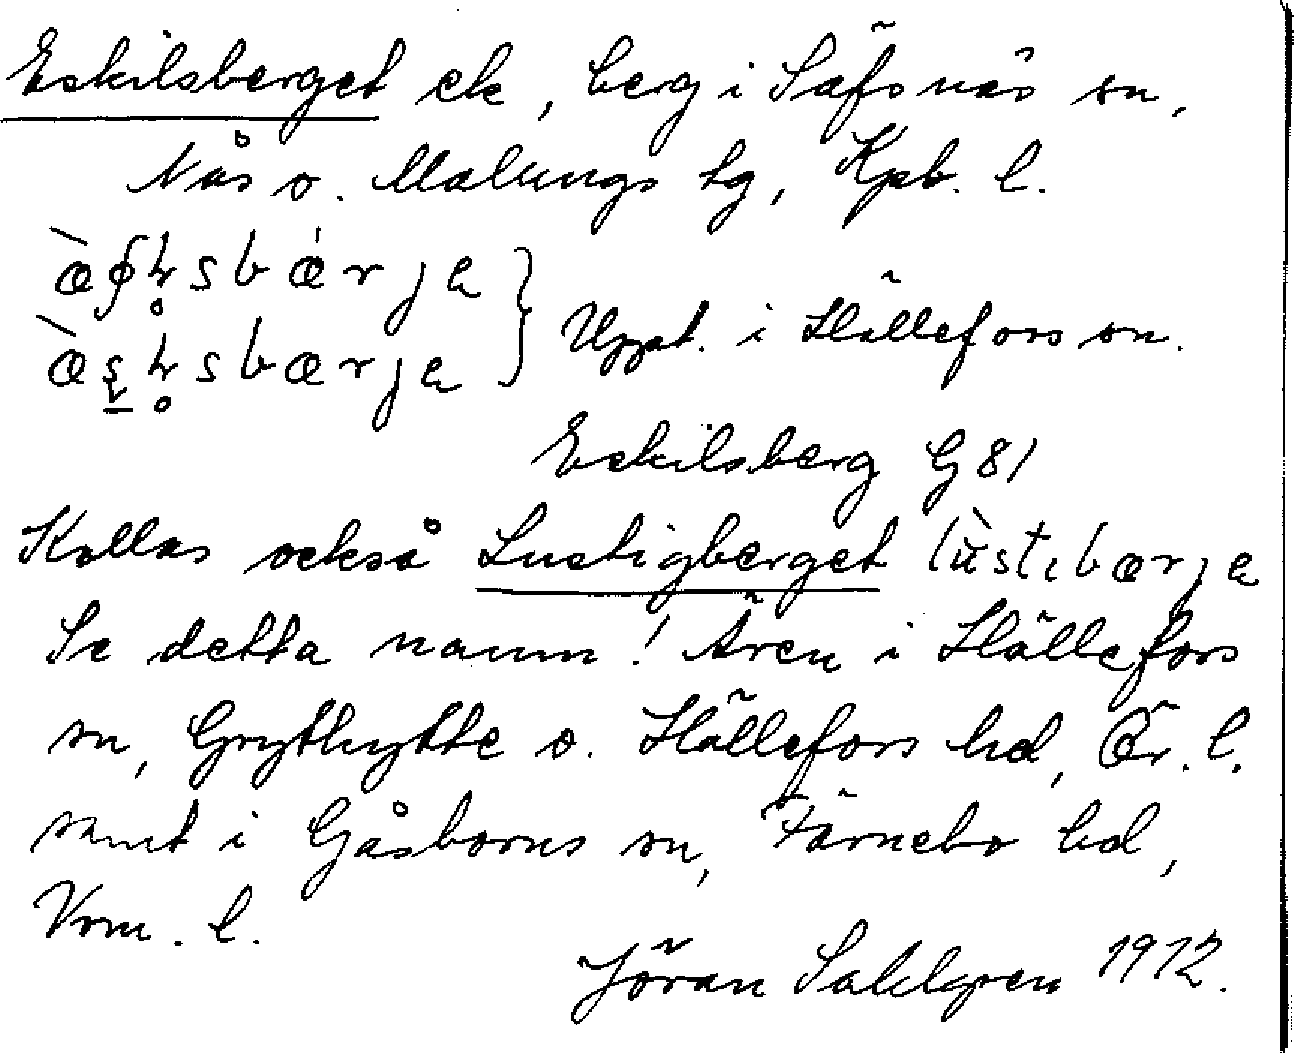 Eskilsberget ek, berg i Säfsnäs sn,
Nås o. Malungs tg, Kpb. l.
bærja
bærja } Uppt. i Hällefors sn.
Eskilsberg G 81
Kallas också Lustigberget lùstıbærja
Se detta namn! Även i Hällefors
sn, Grythytte o. Hällefors hd, Ör. l.
samt i Gåsborns sn, Färnebo hd,
Vrm. l.
Jöran Sahlgren 1912.